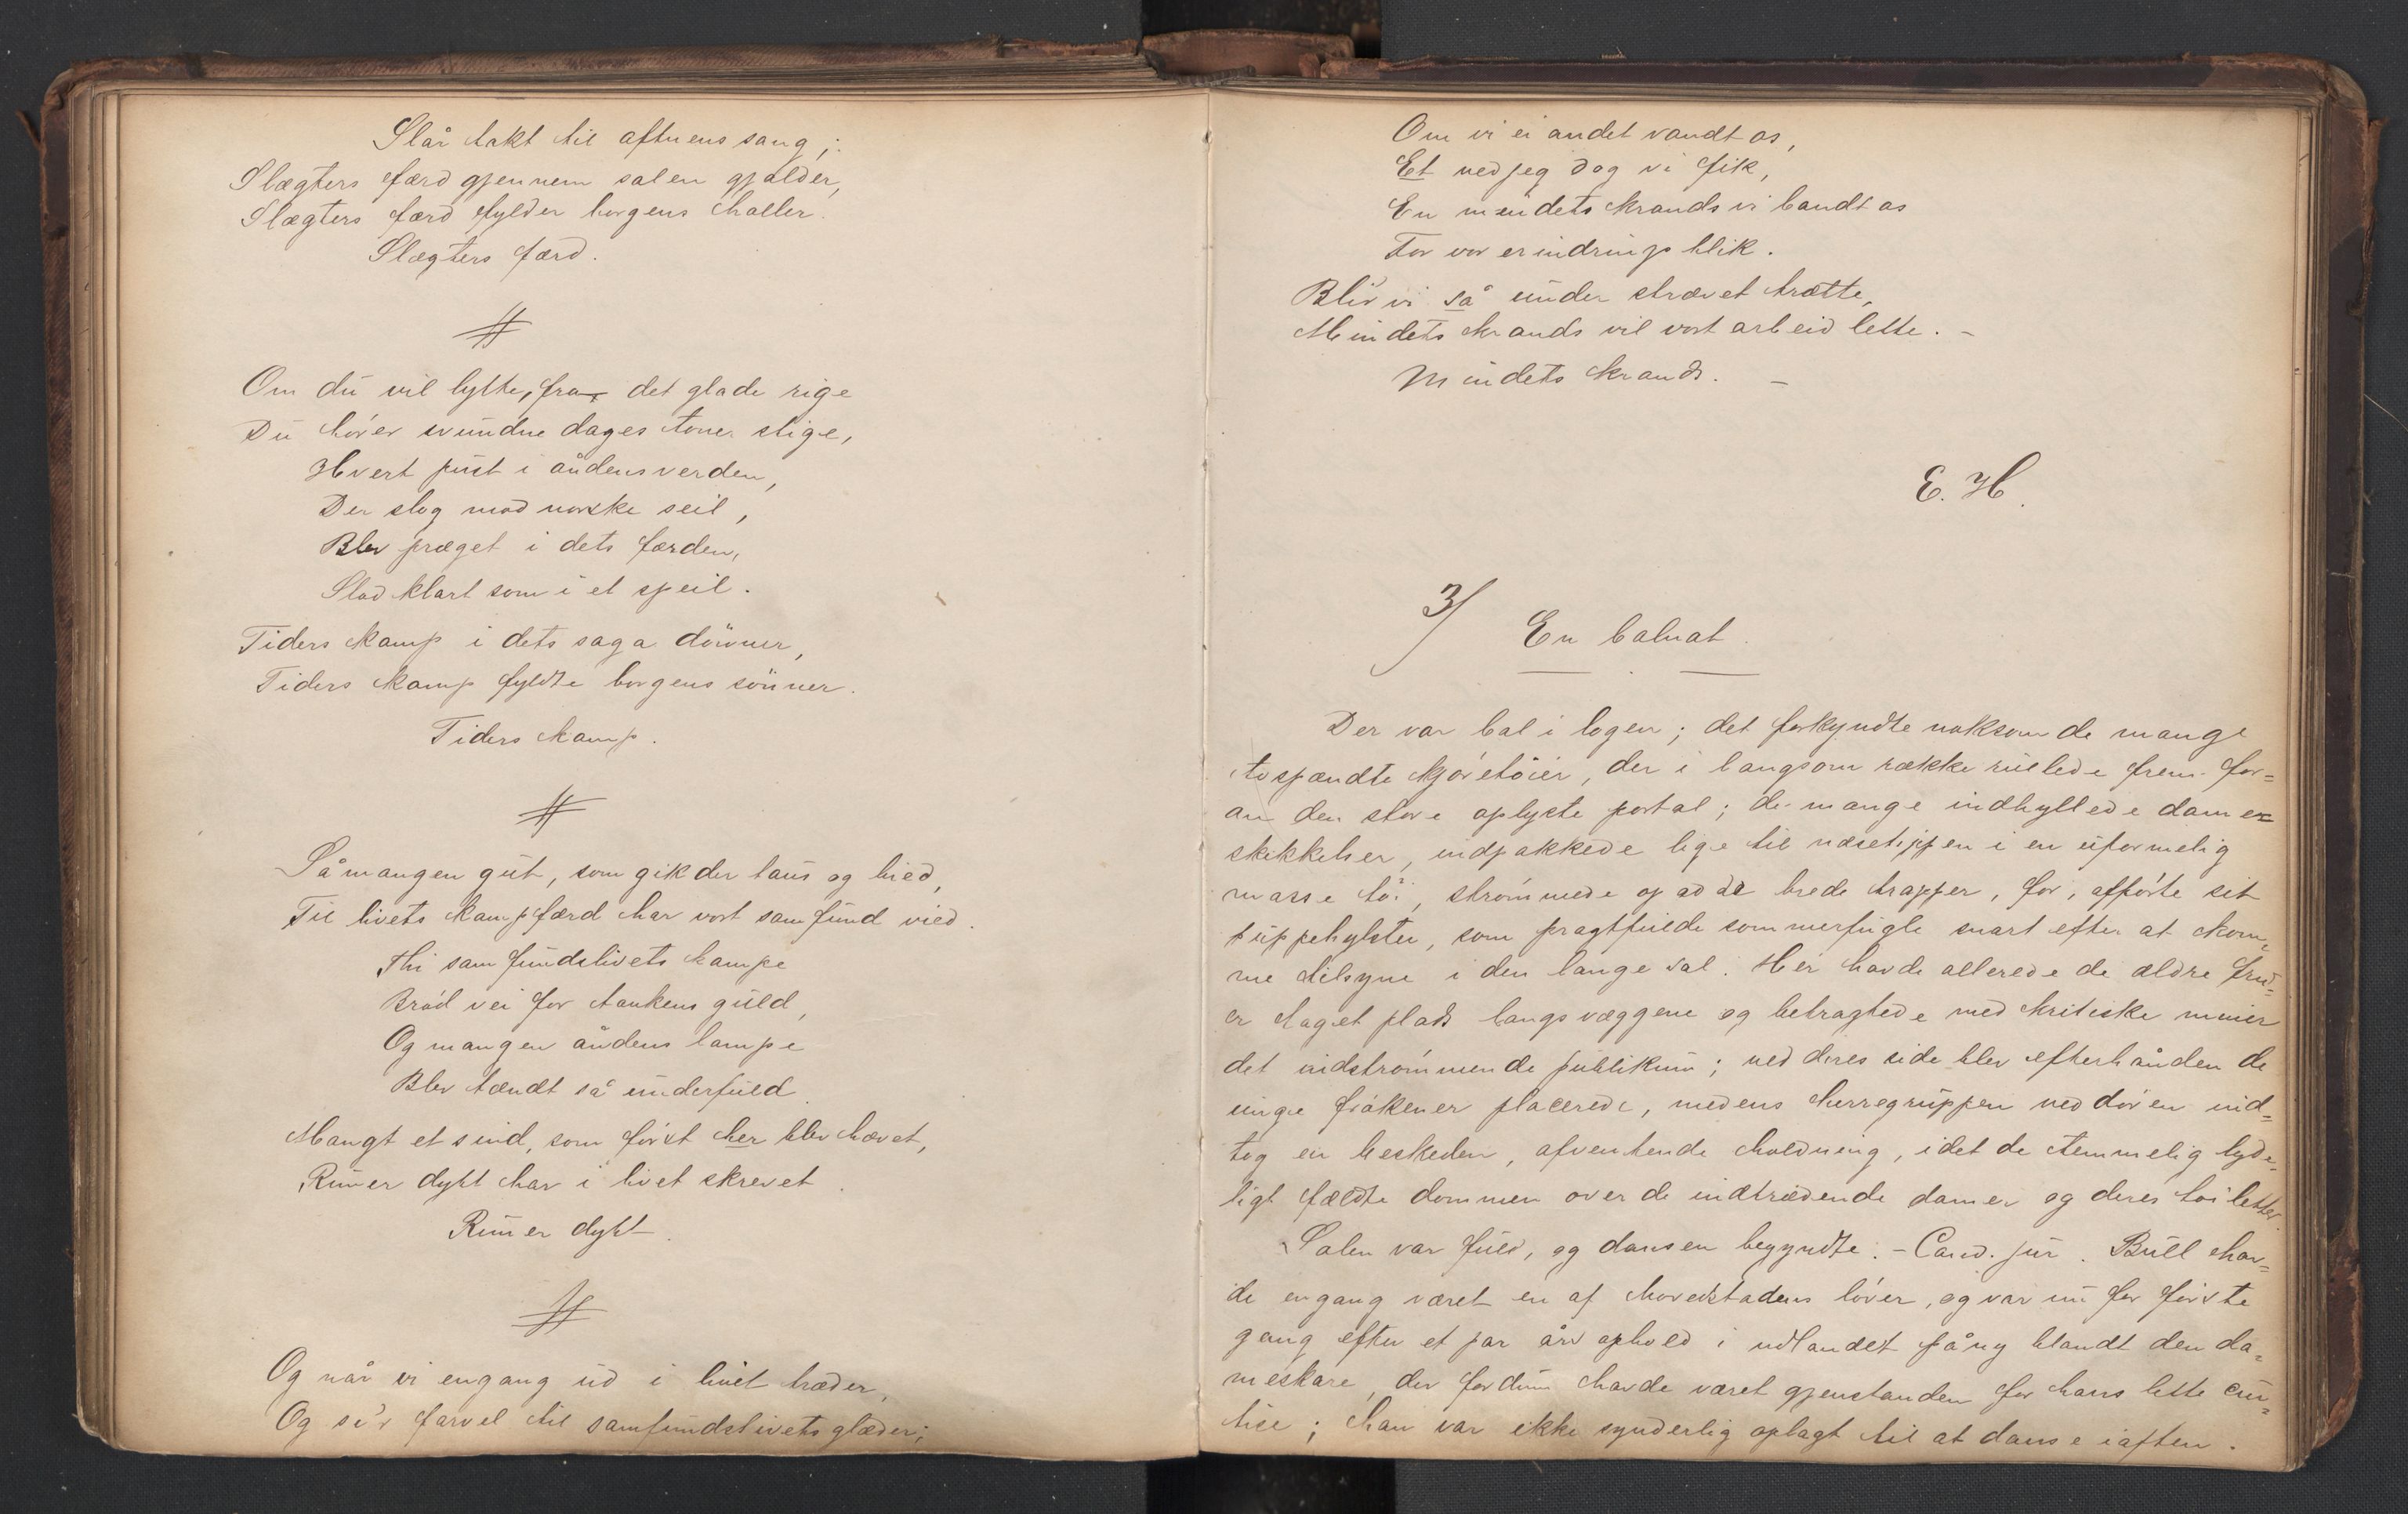 Slår takt til aftnens sang;
Slægters færd gjennem salen gjalder,
Slægters færd fylder borgens haller.
Slægters færd.
#
Om du vil lytte, fra det glade rige
Du hører svundne dages toner stige,
Hvert pust i åndens verden,
Der slog mod norske seil,
Blev præget i dets færden,
Stod klart som i et speil.
Tiders kamp i dets saga dønner,
Tiders kamp fyldte borgens sønner.
Tiders kamp.
#
Så mangen gut, som gik der taus og blied,
Til livets kampfærd har vort samfund vied.
Thi samfundslivets kampe
Brød vei for tankens guld,
Og mangen åndens lampe
Blev tændt så underfuld.
Mangt et sind, som først her blev hævet,
Runer dybt har i livet skrevet.
Runer dybt.
#
Og når vi engang ud i livet træder,
Og si'r farvel til samfundslivets glæder;
Om vi ei andet vandt os,
Et ved jeg dog vi fik,
En mindets krands vi bandt os
For vor erindrings blik.
Bliv vi så under strævet trætte,
Mindets krands vil vort arbeid lette. –
Mindets krands. –
E. H.
3/ En balnat.
Der var bal i logen; det forkyndte noksom de mange
tospændte kjøretøier, der i langsom række rullede frem for=
an den store oplyste portal; de mange indhyllede dame
skikkelser, indpakkede lige til næsetippen i en uformelig
masse tøi, strømmede op ad de brede trapper, for, afførte sit
puppehylster, som pragtfulde sommerfugle snart efter at kom=
me tilsyne i den lange sal. Her havde allerede de ældre fru=
er taget plads langs væggene og betragtede med kritiske miner
det indstrømmende publikum; ved deres side blev efterhånden de
unge frøkener placerede, medens herregruppen ved døren ind=
tog en beskeden, afventende holdning, idet de temmelig tyde=
ligt fældte dommen over de indtrædende damer og deres toiletter.
Salen var fuld, og dansen begyndte. – Cand. jur. Bull hav=
de engang været en af hovedstadens løver, og var nu for første
gang efter et par års ophold i udlandet påny blandt den da=
meskare, der fordum havde været gjenstanden for hans lette cur=
tise; han var ikke synderlig oplagt til at danse iaften.